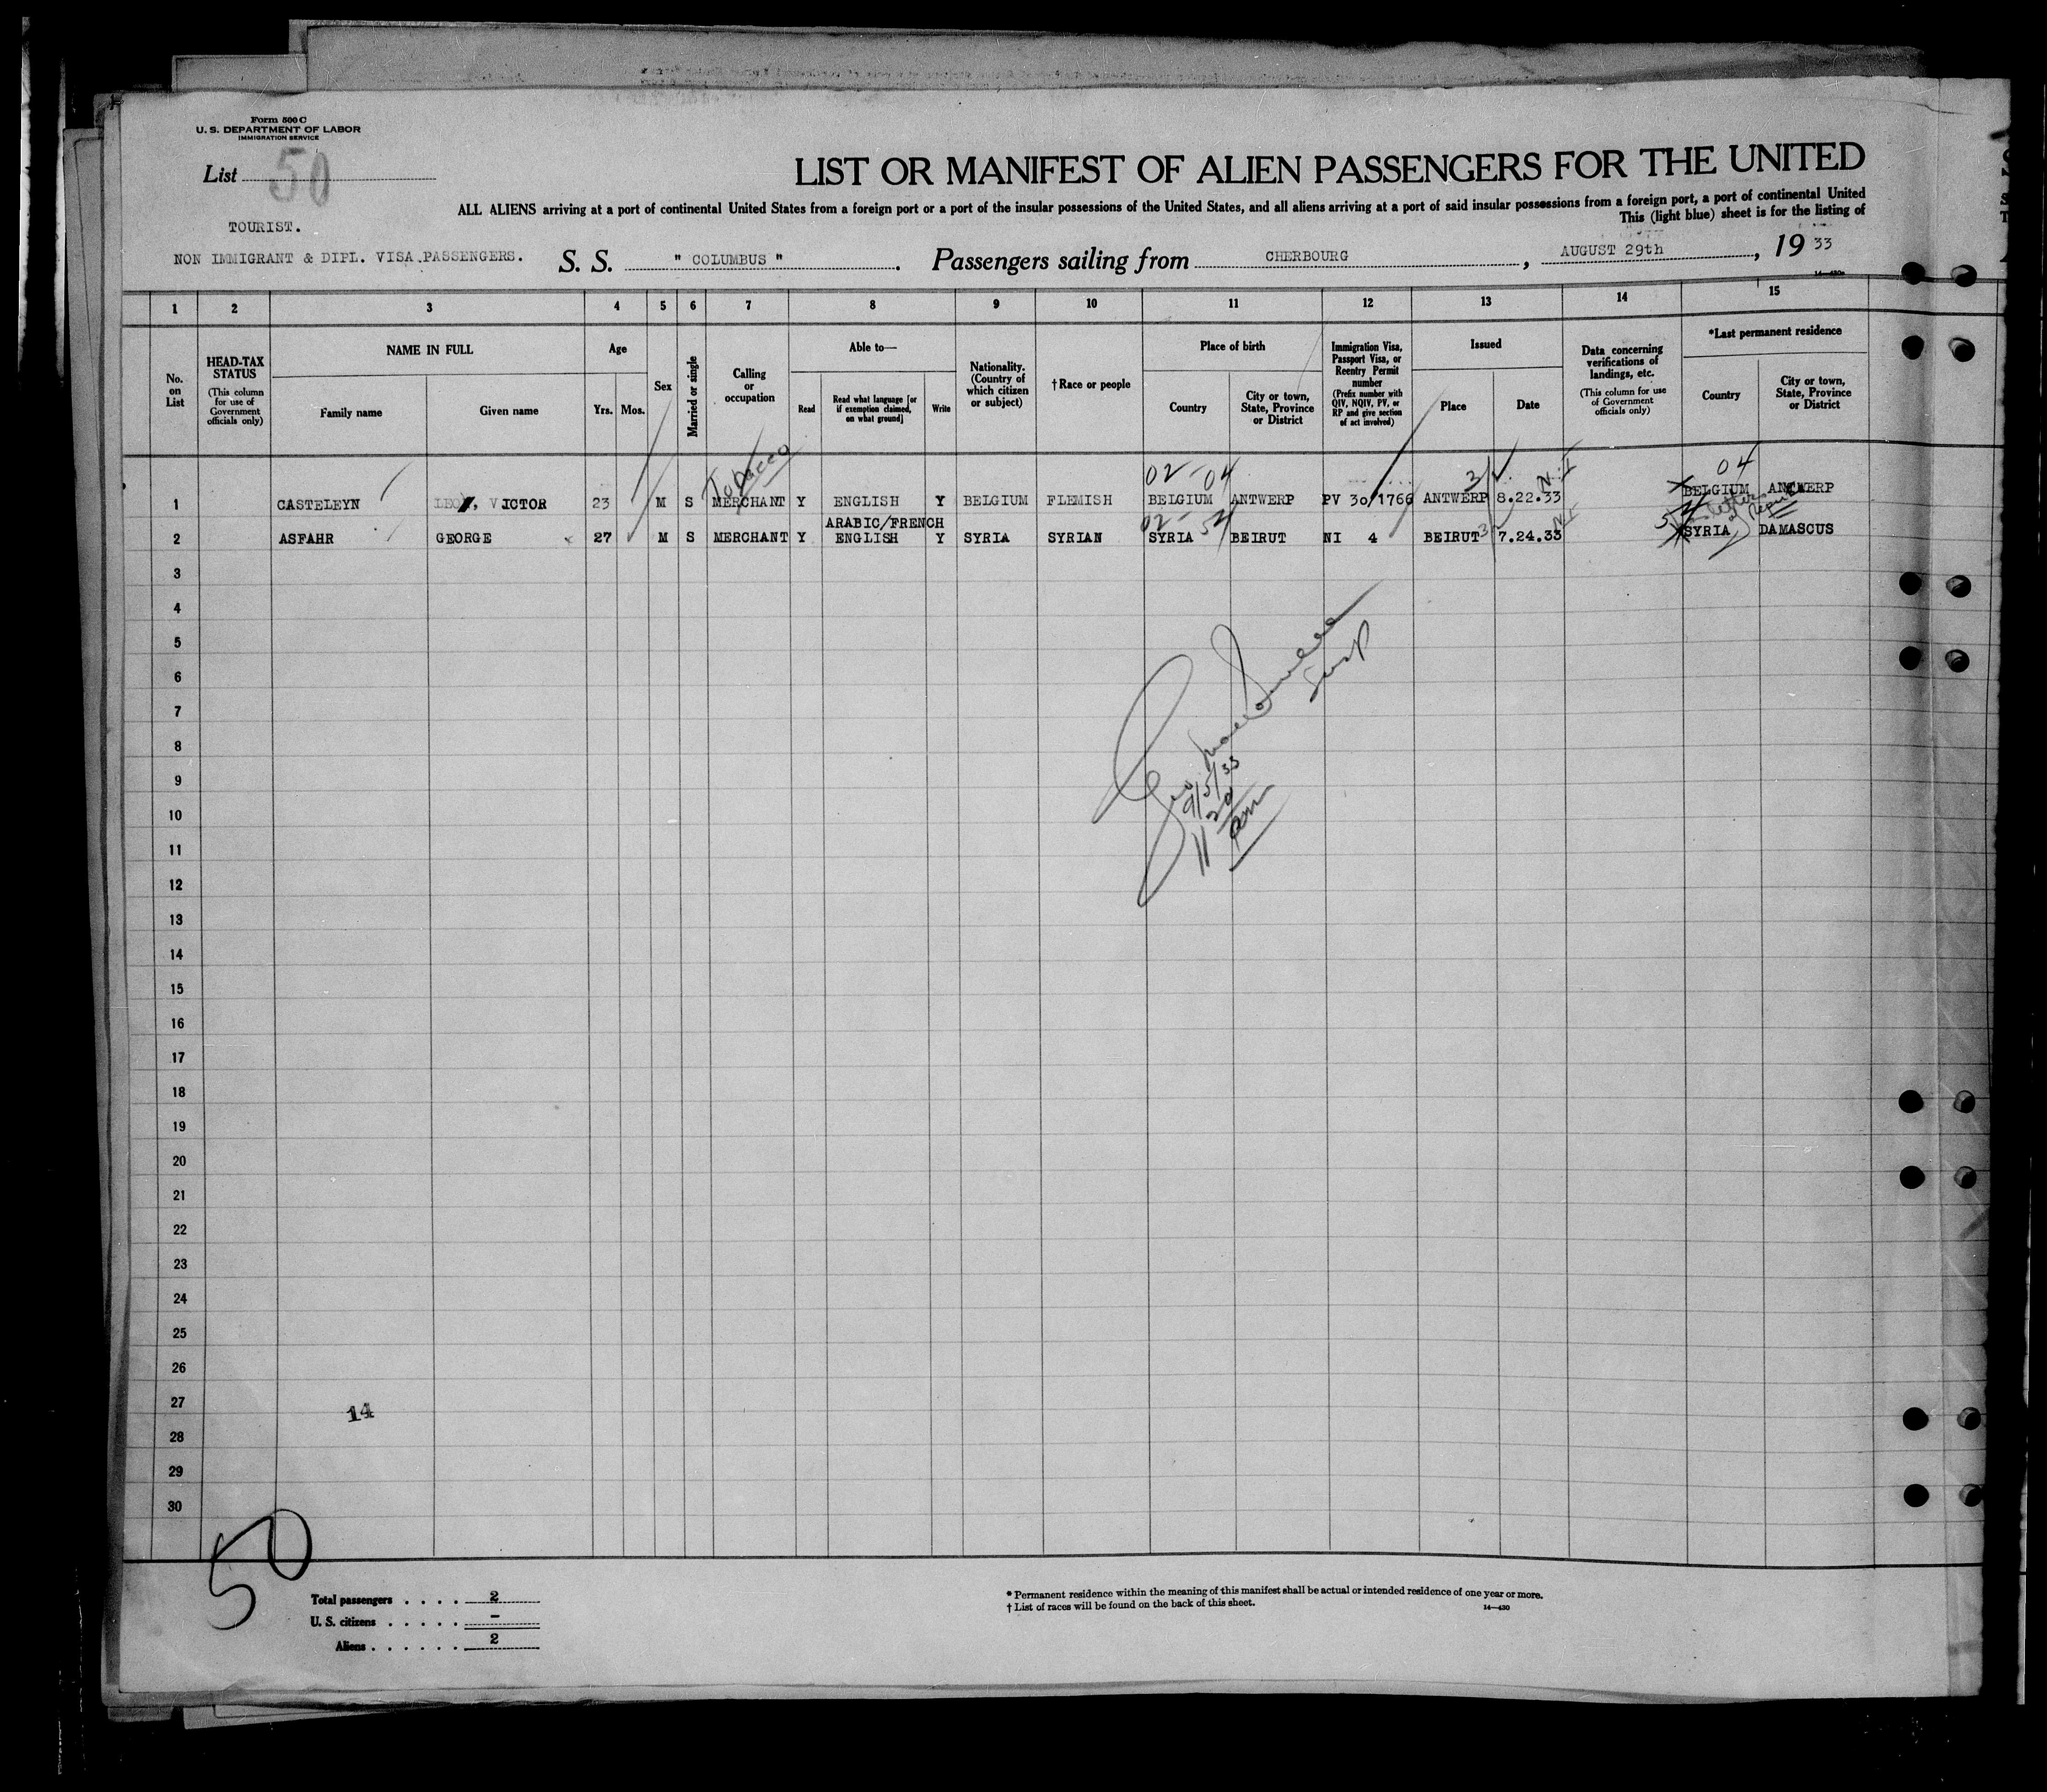 Form 500 C
U. S. DEPARTMENT OF LABOR
IMMIGRATION SERVICE
List 50
LIST OR MANIFEST OF ALIEN PASSENGERS FOR THE UNITED
ALL ALIENS arriving at a port of continental United States from a foreign port or a port of the insular possessions of the United States, and all aliens arriving at a port of said insular possessions from a foreign port, a port of continental United
This (light blue) sheet is for the listing of
TOURIST.
NON IMMIGRANT & DIPL. VISA PASSENGERS. S. S. " COLUMBUS ". Passengers sailing from CHERBOURG, AUGUST 29th, 19 33
1 2 3 4 5 6 7 8 9 10 11 12 13 14 15
No. on List
HEAD-TAX STATUS
(This column for use of Government officials only)
NAME IN FULL
Family name Given name
Age
Yrs. Mos.
Sex
Married or single
Calling or occupation
Able to—
Read
Read what language [or if exemption claimed, on what ground]
Write
Nationality. (Country of which citizen or subject)
†Race or people
Place of birth
Country
City or town, State, Province or District
Immigration Visa, Passport Visa, or Reentry Permit number
(Prefix number with QIV, NQIV, PV, or RP and give section of act involved)
Issued
Place Date
Data concerning verifications of landings, etc.
(This column for use of Government officials only)
*Last permanent residence
Country
City or town, State, Province or District
Tobacco 02-04 3/ N.I 04
1 CASTELEYN VICTOR 23 M S MERCHANT Y ENGLISH Y BELGIUM FLEMISH BELGIUM ANTWERP PV 30/1766 ANTWERP 8.22.33 BELGIUM ANTWERP
ARABIC/FRENCH 02-54
2 ASFAHR GEORGE 27 M S MERCHANT Y ENGLISH Y SYRIA SYRIAN SYRIA BEIRUT NI 4 BEIRUT 7.24.33 SYRIA DAMASCUS
3
4
5
6
7
8
9
10
11
12
13
14
15
16
17
18
19
20
21
22
23
24
25
26
27
28
29
30
9/5/33
11 20 am
14
50
Total passengers . . . . 2
U. S. citizens . . . . . –
Aliens . . . . . . 2
* Permanent residence within the meaning of this manifest shall be actual or intended residence of one year or more.
† List of races will be found on the back of this sheet. 14—430